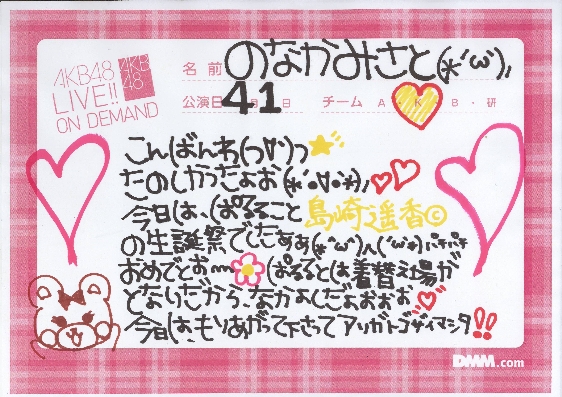 AKB48
LIVE!!
ON DEMAND
AKB
48
名前 のなかみさと(*'ω'),
公演日 41 月 日 チーム A・K・B・研
こんばんわ(っ'∀')っ
たのしかったよお(*'•∀•*),
今日は、ぱるること 島崎遥香©
の生誕祭でしたぁぁ(*^ω^)人('ω'*)パチパチ
おめでとお〜 ぱるるとは着替え場が
となりだから、なかよしだよぉぉぉ
今日は、もりあがって下さってアリガトゴザイマシタ!!
DMM.com